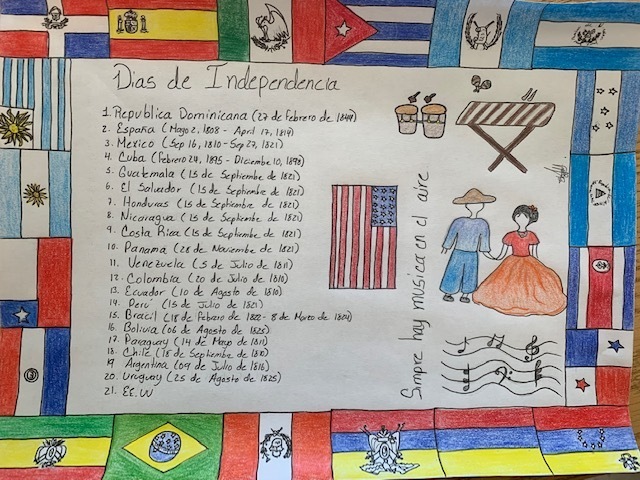 Dias de Independencia
1. Republica Dominicana (27 de Febrero de 1844)
2. España (Mayo 2, 1808 - April 17, 1814)
3. Mexico (Sep 16, 1810 - Sep 27, 1821)
4. Cuba (Febrero 24, 1895 - Diciembre 10, 1898)
5. Guatemala (15 de Septiembre de 1821)
6. El Salvador (15 de Septiembre de 1821)
7. Honduras (15 de Septiembre de 1821)
8. Nicaragua (15 de Septiembre de 1821)
9. Costa Rica (15 de Septiembre de 1821)
10. Panamá (28 de Noviembre de 1821)
11. Venezuela (5 de Julio de 1811)
12. Colombia (20 de Julio de 1810)
13. Ecuador (10 de Agosto de 1810)
14. Perú (15 de Julio de 1821)
15. Bracil (18 de Febrero de 1822 - 8 de Marzo de 1824)
16. Bolivia (06 de Agosto de 1825)
17. Paraguay (14 de Mayo de 1811)
18. Chile (18 de Septiembre de 1810)
19 Argentina (09 de Julio de 1816)
20. Uruguay (25 de Agosto de 1825)
21. EE.UU
Simpre hay musica en el aire